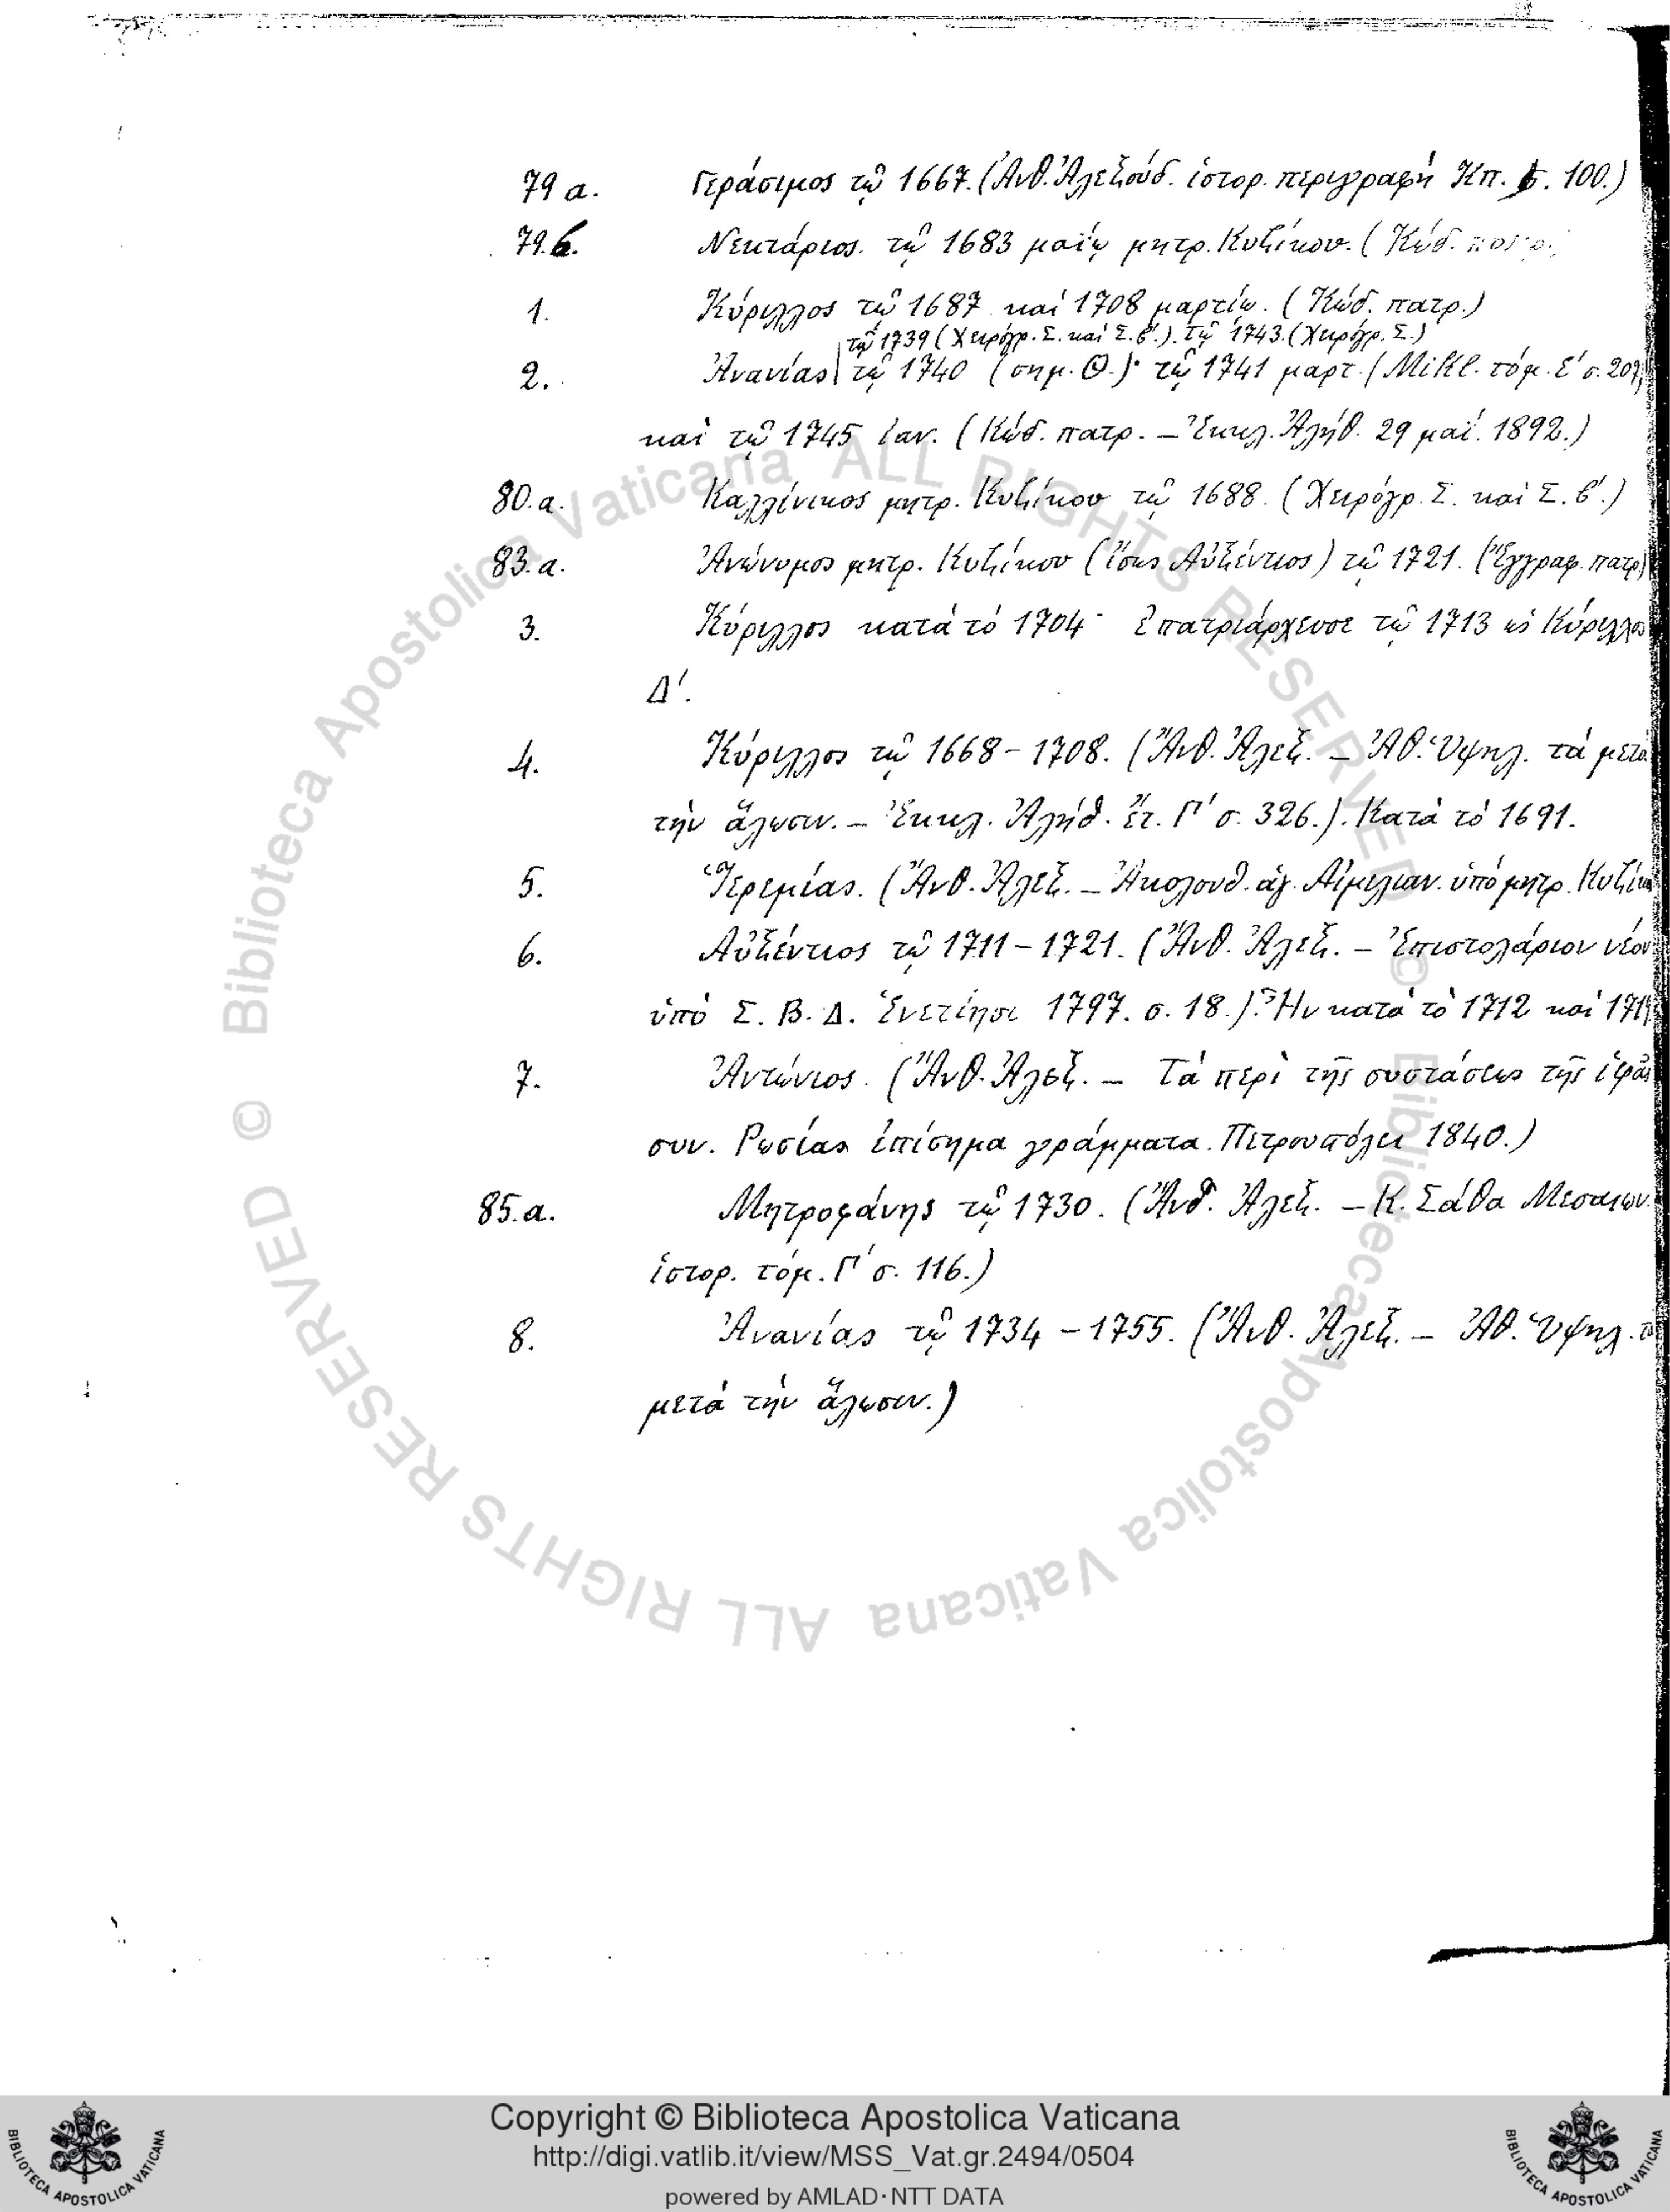 79 α. Γεράσιμος τῷ 1667. (Ἀνθ. Ἀλεξούδ. ἱστορ. περιγραφὴ Κπ. σ. 100.)
79.β. Νεκτάριος. τῷ 1683 μαΐῳ μητρ. Κυζίκου. (Κώδ. πατρ.
1. Κύριλλος τῷ 1687 καὶ 1708 μαρτίῳ. (Κώδ. πατρ.)
τῷ 1739 (Χειρόγρ. Σ. καὶ Σ. β'.). τῷ 1743. (Χειρόγρ. Σ.)
2. Ἀνανίας τῷ 1740 (σημ. Θ.)· τῷ 1741 μαρτ. (Mikl. τόμ. Ε' σ. 207,
καὶ τῷ 1745 ἰαν. (Κώδ. πατρ. – Ἐκκλ. Ἀλήθ. 29 μαΐ. 1892.)
80.α. Καλλίνικος μητρ. Κυζίκου τῷ 1688. (Χειρόγρ. Σ. καὶ Σ. β'.)
83.α. Ἀνώνυμος μητρ. Κυζίκου (ἴσως Αὐξέντιος) τῷ 1721. (Ἔγγραφ. πατρ)
3. Κύριλλος κατὰ τὸ 1704· ἐπατριάρχευσε τῷ 1713 ὡς Κύριλλος
Δ'.
4. Κύριλλος τῷ 1668–1708. (Ἄνθ. Ἀλεξ. – Ἀθ. Ὑψηλ. τὰ μετὰ
τὴν ἅλωσιν. – Ἐκκλ. Ἀλήθ. ἔτ. Γ' σ. 326.). Κατὰ τὸ 1691.
5. Ἱερεμίας. (Ἄνθ. Ἀλεξ. – Ἀκολουθ. ἁγ. Αἰμιλιαν. ὑπὸ μητρ. Κυζίκου
6. Αὐξέντιος τῷ 1711–1721. (Ἄνθ. Ἀλεξ. – Ἐπιστολάριον νέον
ὑπὸ Σ. Β. Δ. Ἐνετίησι 1797. σ. 18.). Ἦν κατὰ τὸ 1712 καὶ
7. Ἀντώνιος. (Ἄνθ. Ἀλεξ. – Τὰ περὶ τῆς συστάσεως τῆς ἱερᾶς
συν. Ρωσίας ἐπίσημα γράμματα. Πετρουπόλει 1840.)
85.α. Μητροφάνης τῷ 1730. (Ἄνθ. Ἀλεξ. – Κ. Σάθα Μεσαιων.
ἱστορ. τόμ. Γ' σ. 116.)
8. Ἀνανίας τῷ 1734–1755. (Ἄνθ. Ἀλεξ. – Ἀθ. Ὑψηλ. τὰ
μετὰ τὴν ἅλωσιν.)
© Biblioteca Apostolica Vaticana ALL RIGHTS RESERVED
© Biblioteca Apostolica Vaticana ALL RIGHTS RESERVED
Copyright © Biblioteca Apostolica Vaticana
http://digi.vatlib.it/view/MSS_Vat.gr.2494/0504
powered by AMLAD·NTT DATA
BIBLIOTECA APOSTOLICA VATICANA
BIBLIOTECA APOSTOLICA VATICANA